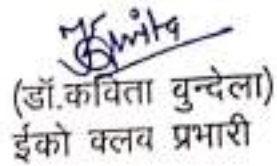 Kavita
(डॉ.कविता वुन्देला)
ईको क्लव प्रभारी